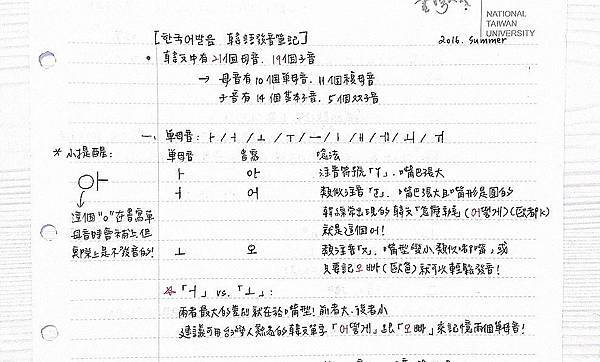 NATIONAL
TAIWAN
UNIVERSITY
[한국어발음 韓語發音筆記]
2016. summer
• 韓文中有21個母音、19個子音
→ 母音有10個單母音、11個複母音
子音有14個基本子音、5個双子音
一、單母音: ㅏ/ㅓ/ㅗ/ㅜ/ㅡ/ㅣ/ㅐ/ㅔ/ㅚ/ㅟ
* 小提醒:
單母音 書寫 唸法
ㅏ 아 注音符號「ㄚ」,嘴巴張大
아
ㅓ 어 類似注音「ㄛ」,嘴巴張大且嘴形是圓的
這個"o"在書寫單
韓綜常出現的韓文「怎麼辦」(어떻게)
母音時會補上但
就是這個어!
實際上是不發音的!
ㅗ 오 類似注音「ㄡ」,嘴型變小類似嘟嘴,或
只要記오빠(歐爸)就可以輕鬆發音!
☆「ㅓ」vs.「ㅗ」:
兩者最大的差別就在於嘴型!前者大、後者小
建議可用台灣人熟悉的韓文單字「어떻게」跟「오빠」來記憶兩個單母音!